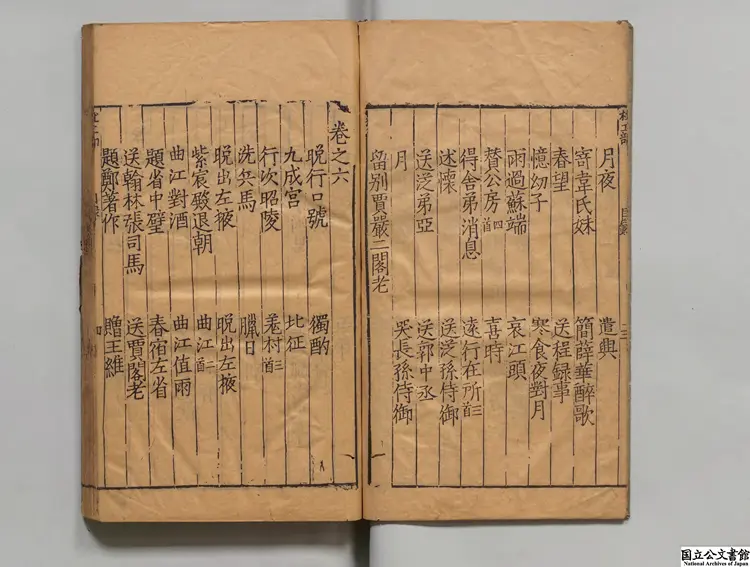 月夜 遣興
寄韋氏妹 簡薛華醉歌
春望 送程録事
憶幼子 寒食夜對月
雨過蘇端 哀江頭
贊公房四首 喜時
得舍弟消息 達行在所三首
述懷 送從孫侍御
送從弟亞 送郭中丞
月 哭長孫侍御
留别賈嚴二閣老
目録 三
卷之六
晚行口號 獨酌
九成宮 北征
行次昭陵 羌村三首
洗兵馬 臘日
晚出左掖 晚出左掖
紫宸殿退朝 曲江二首
曲江對酒 曲江值雨
題省中壁 春宿左省
送翰林張司馬 送賈閣老
題鄭著作 贈王維
四
国立公文書館
National Archives of Japan